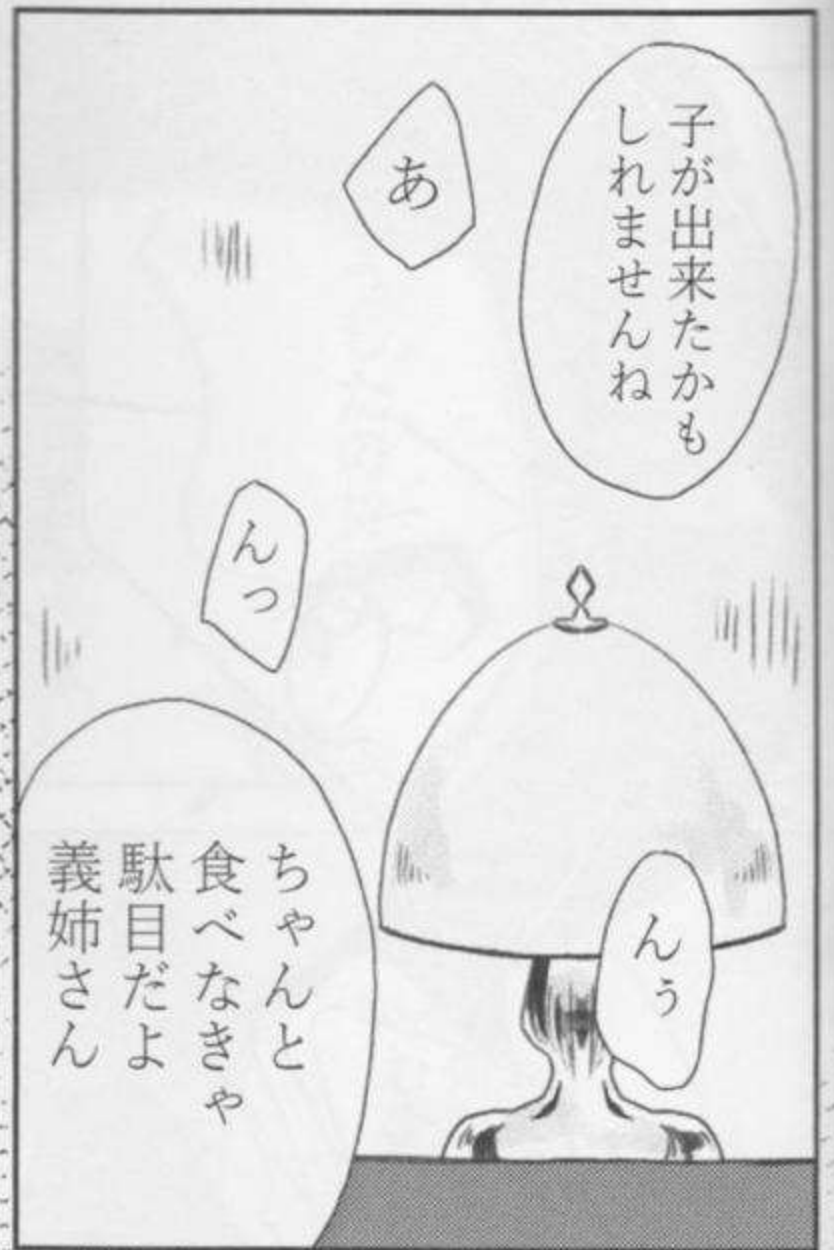 子が出来たかも
しれませんね
あ
んっ
んぅ
ちゃんと
食べなきゃ
駄目だよ
義姉さん